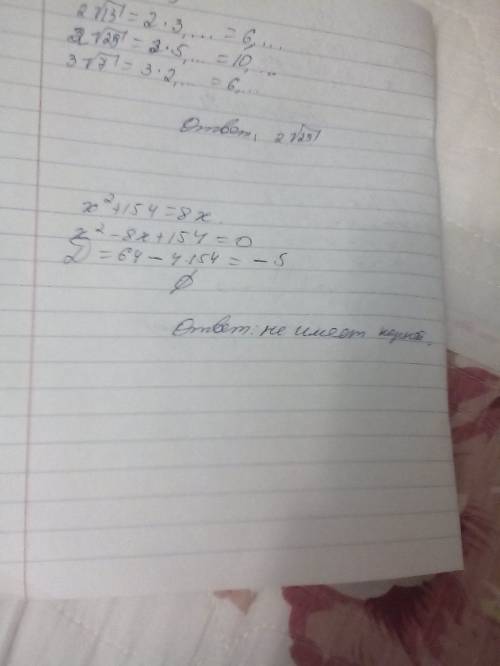 2√13 = 2·3,... = 6,...
2√29 = 2·5,... = 10,...
3√7 = 3·2,... = 6,...
Ответ: 2√29
x²+154=8x
x²-8x+154=0
D=64-4·154=-5
∅
Ответ: не имеет корней.